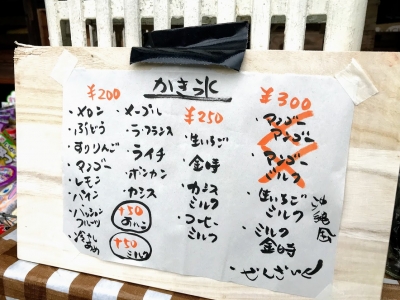 かき氷
¥200
・メロン
・ぶどう
・すりりんご
・マンゴー
・レモン
・パイン
・パッション
フルーツ
・冷やし
あめ
・メープル
・ラ・フランス
・ライチ
・ポンカン
・カシス
+50
あんこ
+50
ミルク
¥250
・生いちご
・金時
・カシス
ミルク
・コーヒー
ミルク
¥300
・マンゴー
マンゴー
・マンゴー
ミルク
・生いちご
ミルク
・ミルク
金時
・ぜんざい
沖縄風